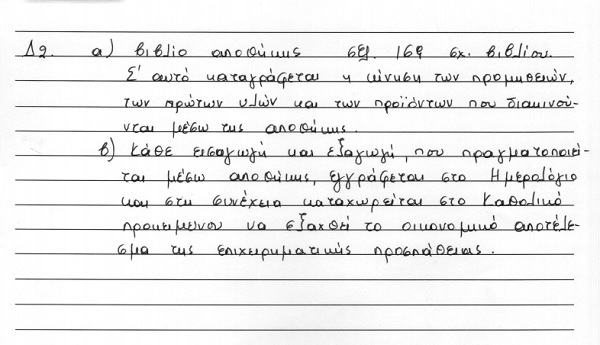 Δ2. α) βιβλίο αποθήκης σελ. 169 σχ. βιβλίου.
Σ' αυτό καταγράφεται η κίνηση των προμηθειών,
των πρώτων υλών και των προϊόντων που διακινού-
νται μέσω της αποθήκης.
β) Κάθε εισαγωγή και εξαγωγή, που πραγματοποιεί-
ται μέσω αποθήκης, εγγράφεται στο Ημερολόγιο
και στη συνέχεια καταχωρείται στο Καθολικό
προκειμένου να εξαχθεί το οικονομικό αποτέλε-
σμα της επιχειρηματικής προσπάθειας.